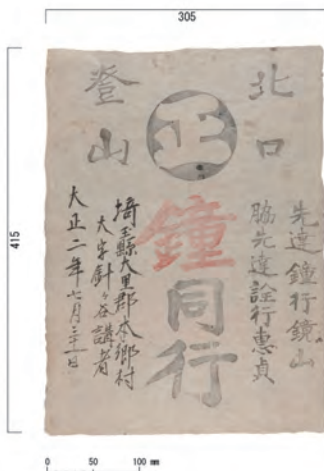 305
415
北口
登山
正
鐘同行
先達鐘行鏡山
脇先達詮行惠貞
埼玉縣大里郡本郷村
大字針ヶ谷講者
大正二年七月三十一日
0 50 100 mm